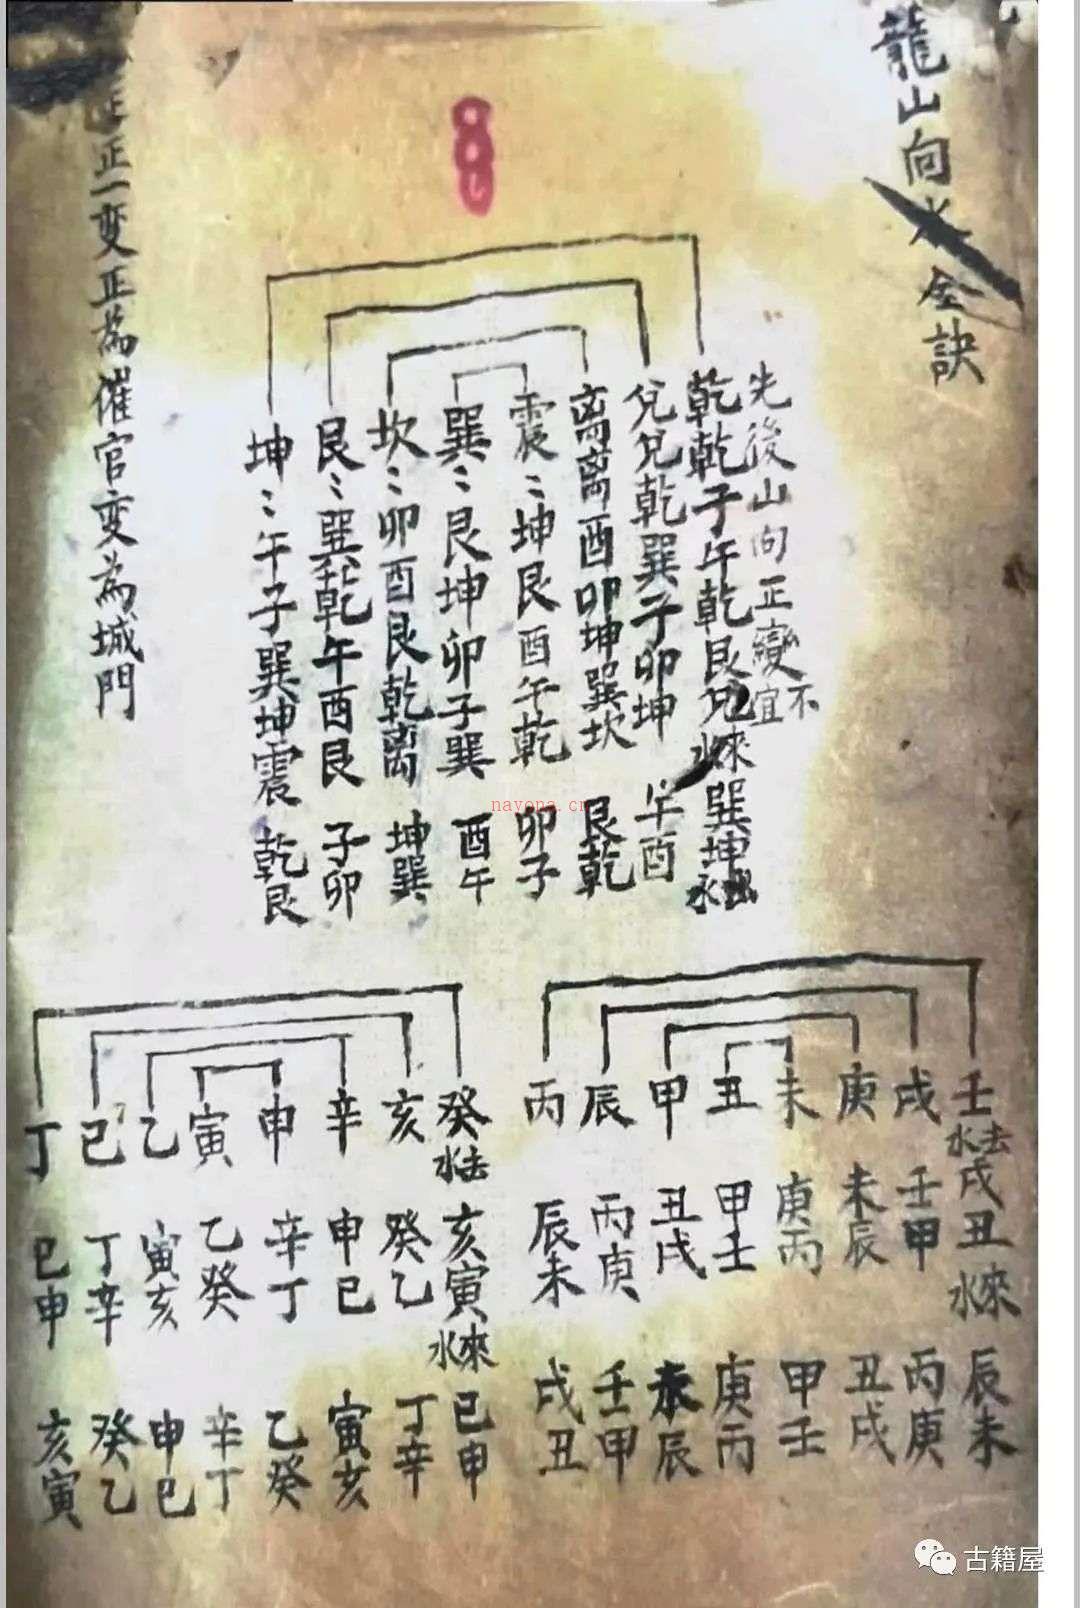 龍山向水全訣
先後山向正變不宜
乾乾子午乾艮兌水來巽坤水出
兌兌乾巽子卯坤午酉
离离酉卯坤巽坎艮乾
震〻坤艮酉午乾卯子
巽〻艮坤卯子巽酉午
坎〻卯酉艮乾离坤巽
艮〻巽乾午酉艮子卯
坤〻午子巽坤震乾艮
正一变正為催官变為城門
8
壬水去戌丑水來辰未
戌壬甲丙庚
庚未辰丑戌
未庚丙甲壬
丑甲壬庚丙
甲丑戌未辰
辰丙庚壬甲
丙辰未戌丑
癸水去亥寅水來巳申
亥癸乙丁辛
辛申巳寅亥
申辛丁乙癸
寅乙癸辛丁
乙寅亥申巳
巳丁辛癸乙
丁巳申亥寅
nayona.cn
古籍屋